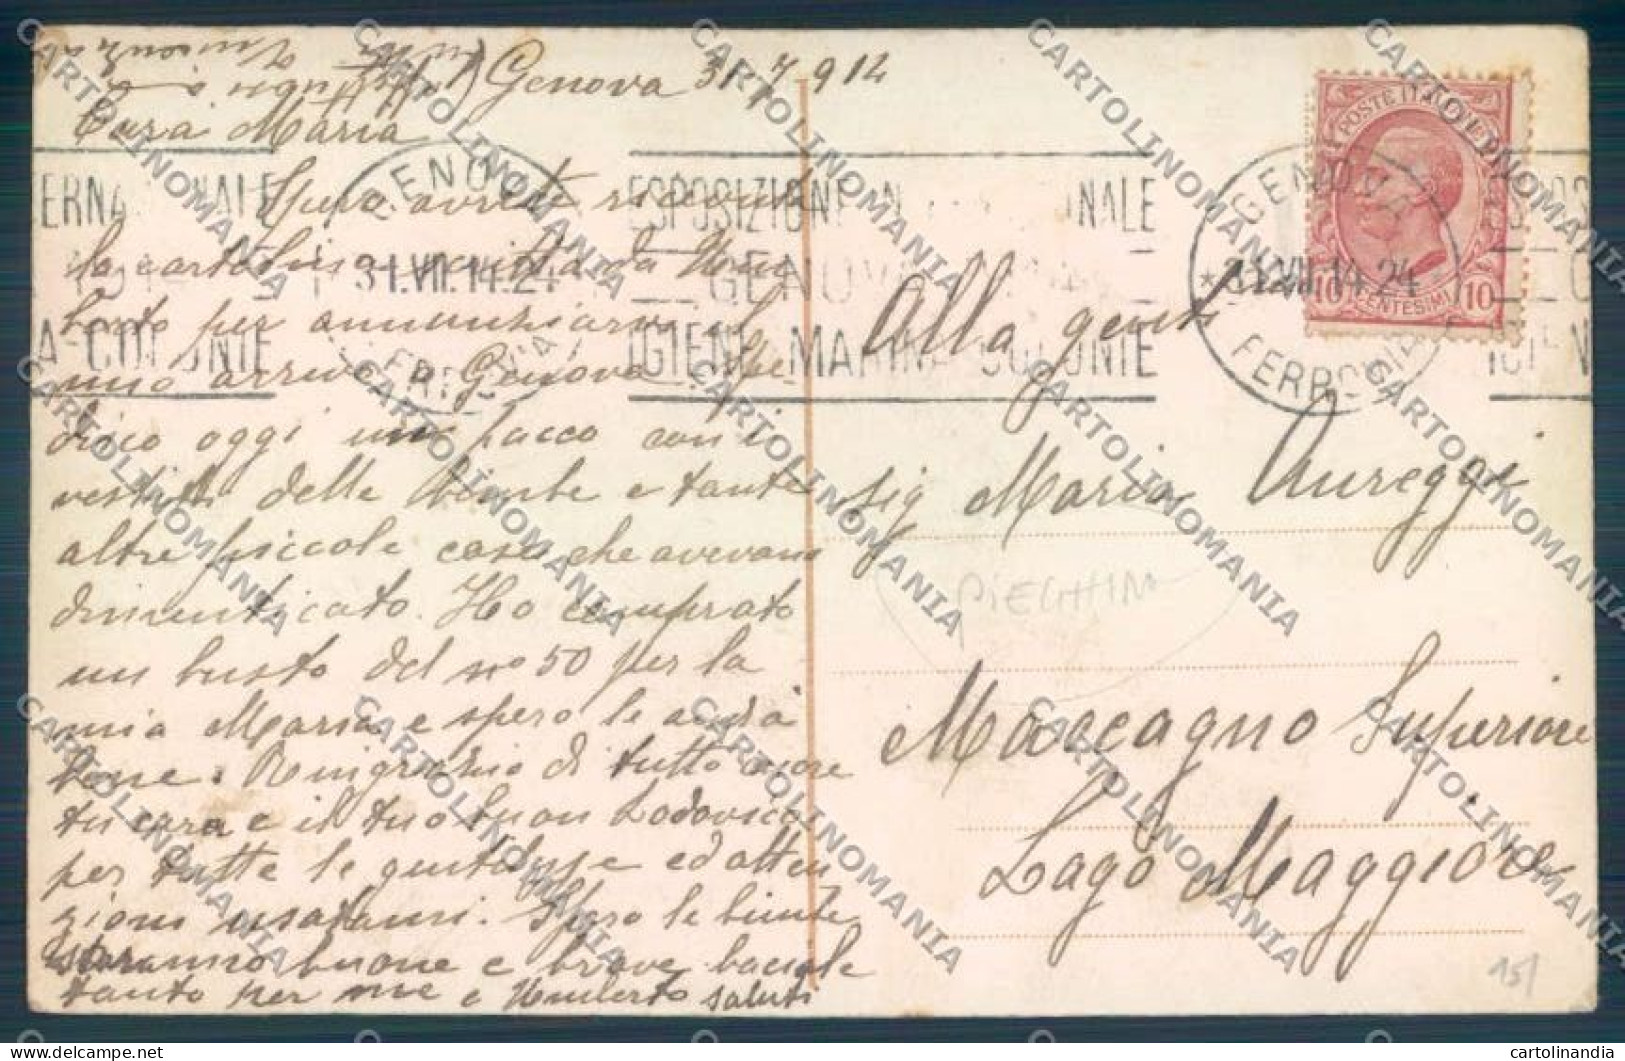 Genova 31 7 914
Cara Maria
Spero avrete ricevuta
la cartolina scritta da Um
berto per annunziarvi il
mio arrivo a Genova. Spe-
disco oggi un pacco con i
vestiti delle bimbe e tante
altre piccole cose che avevano
dimenticato. Ho comprato
un busto del no 50 per la
mia Maria e spero le andrà
bene. Ringrazio di tutto cuore
tu cara e il tuo buon Lodovico
per tutte le gentilezze ed atten
zioni usatami. Spero le bimbe
saranno buone e brave baciale
tanto per me e Umberto saluti
GENOVA
31.VII.14.24
FERROVIA
ESPOSIZIONE INTERNAZIONALE
GENOVA
IGIENE MARINA COLONIE
GENOVA
31.VII.14 24
FERROVIA
POSTE ITALIANE
10 CENTESIMI 10
Alla gent
sig Maria Aureggi
PIEGHINA
Maccagno Superiore
Lago Maggiore
15/
CARTOLINOMANIA
cartolinandia